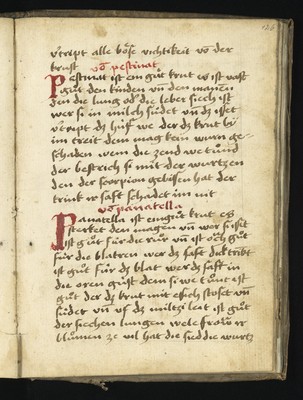 126
vertript alle böse vichtikeit vō der
brust vō pestinat
Pestinat ist ein gůt krut es ist vast
gůt den kinden vñ den manen
den die lung odʼ die leber siech ist
wer si in milch südet vñ dz isset
vertript dz hůst we der dz krut bÿ
im treit dem mag kein wurm ge-
schaden wenn die zend we tůnd
der bestrich si mit der wurtzen
den der scorpion gebissen hat der
trink ir saft schadet im nit
vō panatella
Panatella ist ein gůt krut es
sterket den magen vñ wer si isset
ist gůt für die růr vñ ist ouch gůt
für die blatren wer dz saft dick tribt
ist gůt für dz blat wer dz saft in
die oren gůst dem si we tůnt ist
gůt der dz krut mit essich stoset vñ
südet vñ vf dz miltzi leit ist gůt
der siechen lungen wele frow ir
blůmen ze vil hat die sied die wurtz